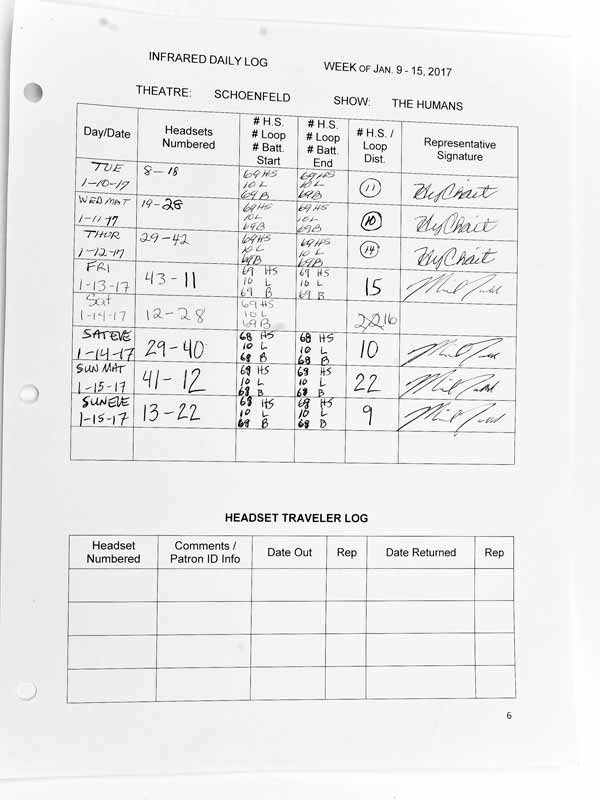 INFRARED DAILY LOG WEEK OF JAN. 9 - 15, 2017
THEATRE: SCHOENFELD SHOW: THE HUMANS
Day/Date Headsets Numbered # H.S. # Loop # Batt. Start # H.S. # Loop # Batt. End # H.S. / Loop Dist. Representative Signature
TUE 1-10-17 8-18 69 HS 10 L 69 B 69 HS 10 L 69 B 11
WED MAT 1-11-17 19-28 69 HS 10 L 69 B 69 HS 10 L 69 B 10
THUR 1-12-17 29-42 69 HS 10 L 69 B 69 HS 10 L 69 B 14
FRI 1-13-17 43-11 69 HS 10 L 69 B 69 HS 10 L 69 B 15
Sat 1-14-17 12-28 69 HS 10 L 69 B 16
SAT EVE 1-14-17 29-40 68 HS 10 L 68 B 68 HS 10 L 68 B 10
SUN MAT 1-15-17 41-12 68 HS 10 L 68 B 68 HS 10 L 68 B 22
SUN EVE 1-15-17 13-22 68 HS 10 L 68 B 68 HS 10 L 68 B 9
HEADSET TRAVELER LOG
Headset Numbered Comments / Patron ID Info Date Out Rep Date Returned Rep
6